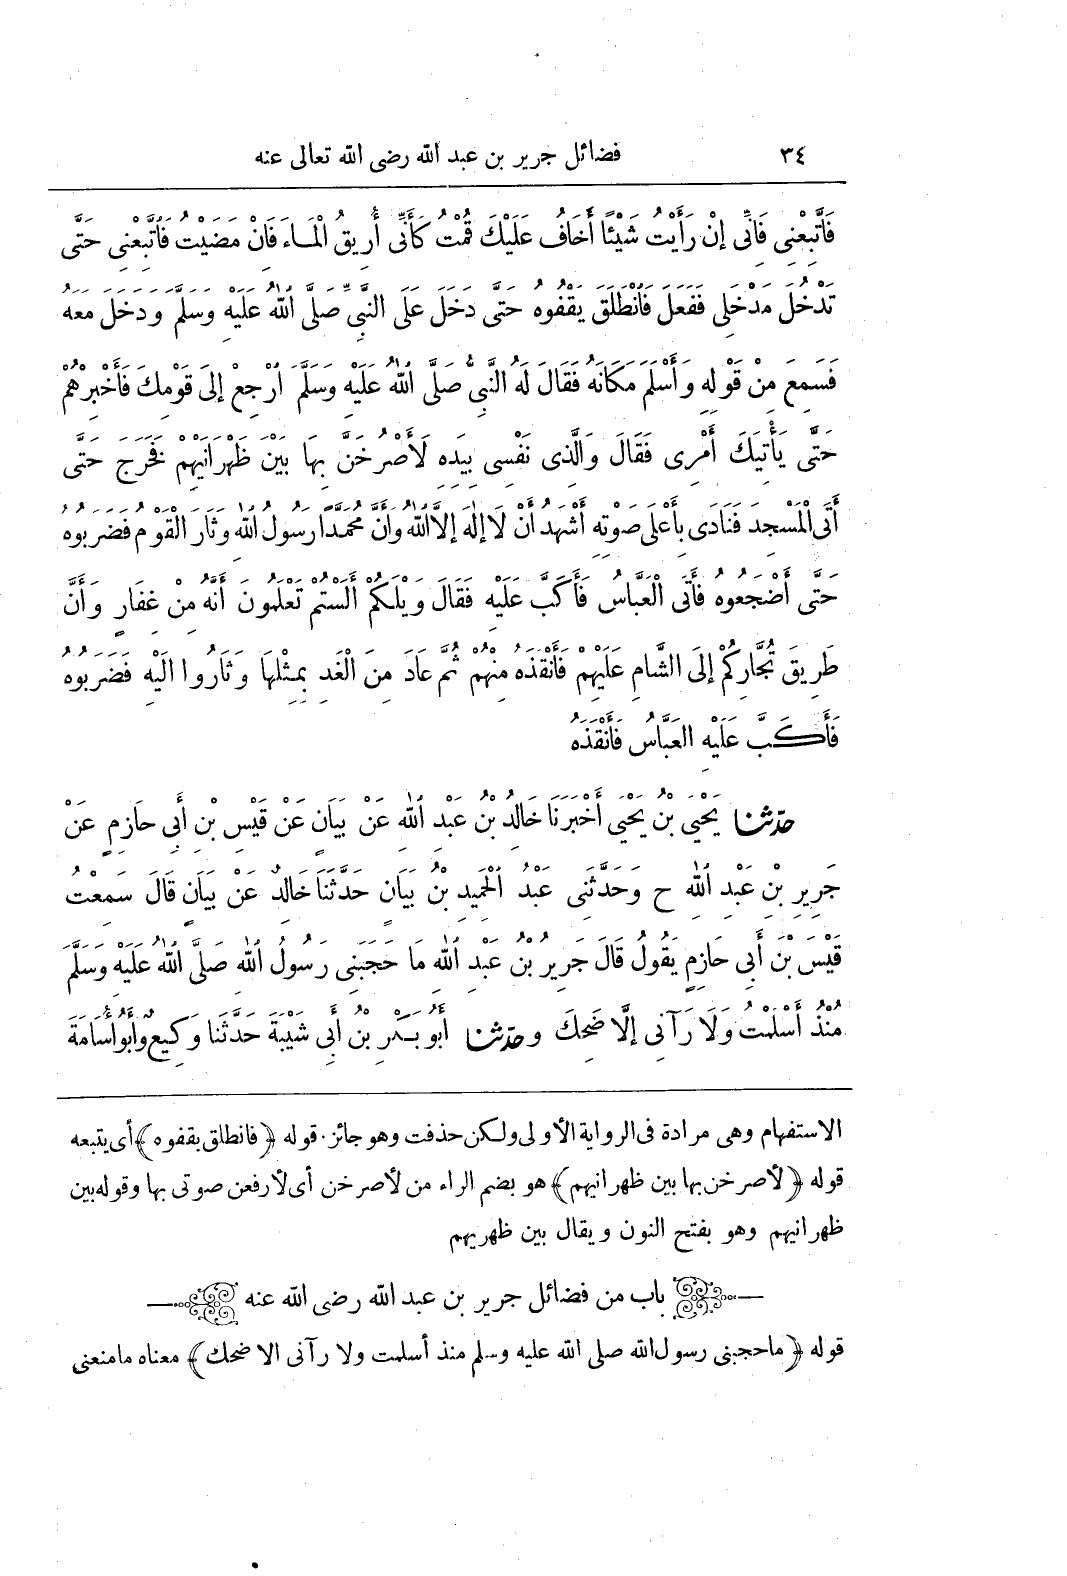 ٣٤ فضائل جرير بن عبد الله رضى الله تعالى عنه
فَاتَّبِعْنِى فَإِنِّى إِنْ رَأَيْتُ شَيْئًا أَخَافُ عَلَيْكَ قُمْتُ كَأَنِّى أُرِيقُ الْمَاءَ فَإِنْ مَضَيْتُ فَاتَّبِعْنِى حَتَّى
تَدْخُلَ مَدْخَلِى فَفَعَلَ فَانْطَلَقَ يَقْفُوهُ حَتَّى دَخَلَ عَلَى النَّبِىِّ صَلَّى اللّٰهُ عَلَيْهِ وَسَلَّمَ وَدَخَلَ مَعَهُ
فَسَمِعَ مِنْ قَوْلِهِ وَأَسْلَمَ مَكَانَهُ فَقَالَ لَهُ النَّبِىُّ صَلَّى اللّٰهُ عَلَيْهِ وَسَلَّمَ ارْجِعْ إِلَى قَوْمِكَ فَأَخْبِرْهُمْ
حَتَّى يَأْتِيَكَ أَمْرِى فَقَالَ وَالَّذِى نَفْسِى بِيَدِهِ لَأَصْرُخَنَّ بِهَا بَيْنَ ظَهْرَانَيْهِمْ فَخَرَجَ حَتَّى
أَتَى الْمَسْجِدَ فَنَادَى بِأَعْلَى صَوْتِهِ أَشْهَدُ أَنْ لَا إِلٰهَ إِلَّا اللّٰهُ وَأَنَّ مُحَمَّدًا رَسُولُ اللّٰهِ وَثَارَ الْقَوْمُ فَضَرَبُوهُ
حَتَّى أَضْجَعُوهُ فَأَتَى الْعَبَّاسُ فَأَكَبَّ عَلَيْهِ فَقَالَ وَيْلَكُمْ أَلَسْتُمْ تَعْلَمُونَ أَنَّهُ مِنْ غِفَارٍ وَأَنَّ
طَرِيقَ تُجَّارِكُمْ إِلَى الشَّامِ عَلَيْهِمْ فَأَنْقَذَهُ مِنْهُمْ ثُمَّ عَادَ مِنَ الْغَدِ بِمِثْلِهَا وَثَارُوا إِلَيْهِ فَضَرَبُوهُ
فَأَكَبَّ عَلَيْهِ الْعَبَّاسُ فَأَنْقَذَهُ
حَدَّثَنَا يَحْيَى بْنُ يَحْيَى أَخْبَرَنَا خَالِدُ بْنُ عَبْدِ اللّٰهِ عَنْ بَيَانٍ عَنْ قَيْسِ بْنِ أَبِى حَازِمٍ عَنْ
جَرِيرِ بْنِ عَبْدِ اللّٰهِ ح وَحَدَّثَنِى عَبْدُ الْحَمِيدِ بْنُ بَيَانٍ حَدَّثَنَا خَالِدٌ عَنْ بَيَانٍ قَالَ سَمِعْتُ
قَيْسَ بْنَ أَبِى حَازِمٍ يَقُولُ قَالَ جَرِيرُ بْنُ عَبْدِ اللّٰهِ مَا حَجَبَنِى رَسُولُ اللّٰهِ صَلَّى اللّٰهُ عَلَيْهِ وَسَلَّمَ
مُنْذُ أَسْلَمْتُ وَلَا رَآنِى إِلَّا ضَحِكَ وحَدَّثَنَا أَبُو بَكْرِ بْنُ أَبِى شَيْبَةَ حَدَّثَنَا وَكِيعٌ وَأَبُو أُسَامَةَ
الاستفهام وهى مرادة فى الرواية الأولى ولكن حذفت وهو جائز. قوله ﴿فانطلق يقفوه﴾ أى يتبعه
قوله ﴿لأصرخن بها بين ظهرانيهم﴾ هو بضم الراء من لأصرخن أى لأرفعن صوتى بها وقوله بين
ظهرانيهم وهو بفتح النون ويقال بين ظهريهم
باب من فضائل جرير بن عبد الله رضى الله عنه
قوله ﴿ما حجبنى رسول الله صلى الله عليه وسلم منذ أسلمت ولا رآنى الا ضحك﴾ معناه ما منعنى